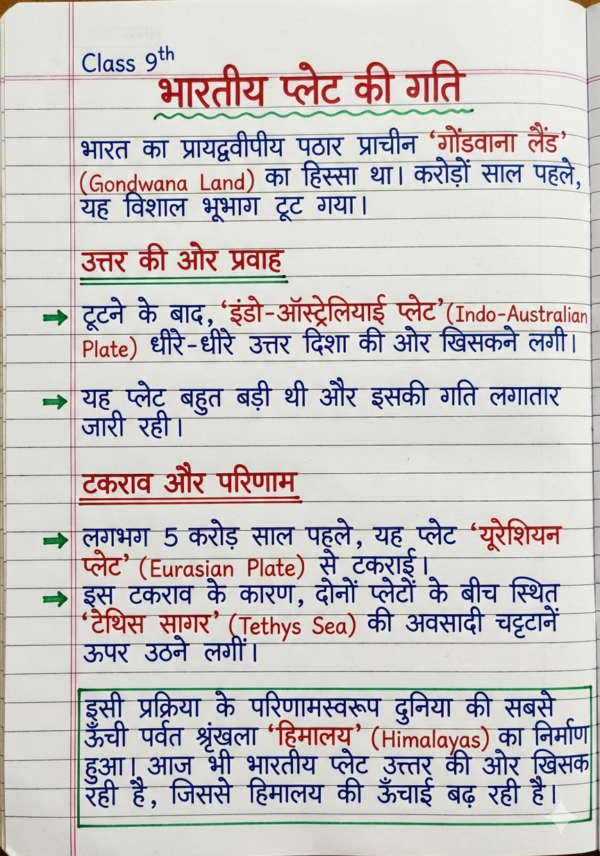 Class 9th
भारतीय प्लेट की गति
भारत का प्रायद्वीपीय पठार प्राचीन ‘गोंडवाना लैंड’
(Gondwana Land) का हिस्सा था। करोड़ों साल पहले,
यह विशाल भूभाग टूट गया।
उत्तर की ओर प्रवाह
→ टूटने के बाद, ‘इंडो-ऑस्ट्रेलियाई प्लेट’ (Indo-Australian
Plate) धीरे-धीरे उत्तर दिशा की ओर खिसकने लगी।
→ यह प्लेट बहुत बड़ी थी और इसकी गति लगातार
जारी रही।
टकराव और परिणाम
→ लगभग 5 करोड़ साल पहले, यह प्लेट ‘यूरेशियन
प्लेट’ (Eurasian Plate) से टकराई।
→ इस टकराव के कारण, दोनों प्लेटों के बीच स्थित
‘टेथिस सागर’ (Tethys Sea) की अवसादी चट्टटानें
ऊपर उठने लगीं।
इसी प्रक्रिया के परिणामस्वरूप दुनिया की सबसे
ऊँची पर्वत श्रृंखला ‘हिमालय’ (Himalayas) का निर्माण
हुआ। आज भी भारतीय प्लेट उत्त्तर की ओर खिसक
रही है, जिससे हिमालय की ऊँचाई बढ़ रही है।